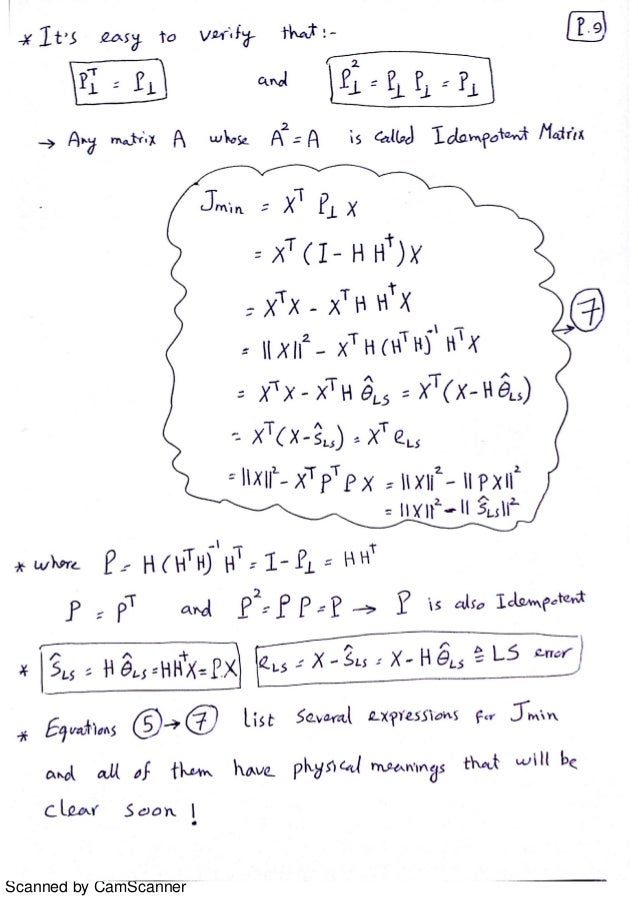 P.9
* It's easy to verify that:-
P⊥ᵀ = P⊥ and P⊥² = P⊥ P⊥ = P⊥
→ Any matrix A whose A² = A is called Idempotent Matrix
Jmin = Xᵀ P⊥ X
= Xᵀ (I - H H†) X
= XᵀX - Xᵀ H H† X
= ||X||² - Xᵀ H (HᵀH)⁻¹ Hᵀ X
= XᵀX - Xᵀ H θ̂LS = Xᵀ(X - H θ̂LS)
= Xᵀ(X - ŝLS) = Xᵀ eLS
= ||X||² - Xᵀ Pᵀ P X = ||X||² - ||PX||²
= ||X||² - ||ŜLS||²
7
* where P = H (HᵀH)⁻¹ Hᵀ = I - P⊥ = HH†
P = Pᵀ and P² = P P = P → P is also Idempotent
* ŜLS = H θ̂LS = HH†X = P.X eLS = X - ŜLS = X - H θ̂LS ≜ LS error
* Equations 5 → 7 list several expressions for Jmin
and all of them have physical meanings that will be
clear soon !
Scanned by CamScanner